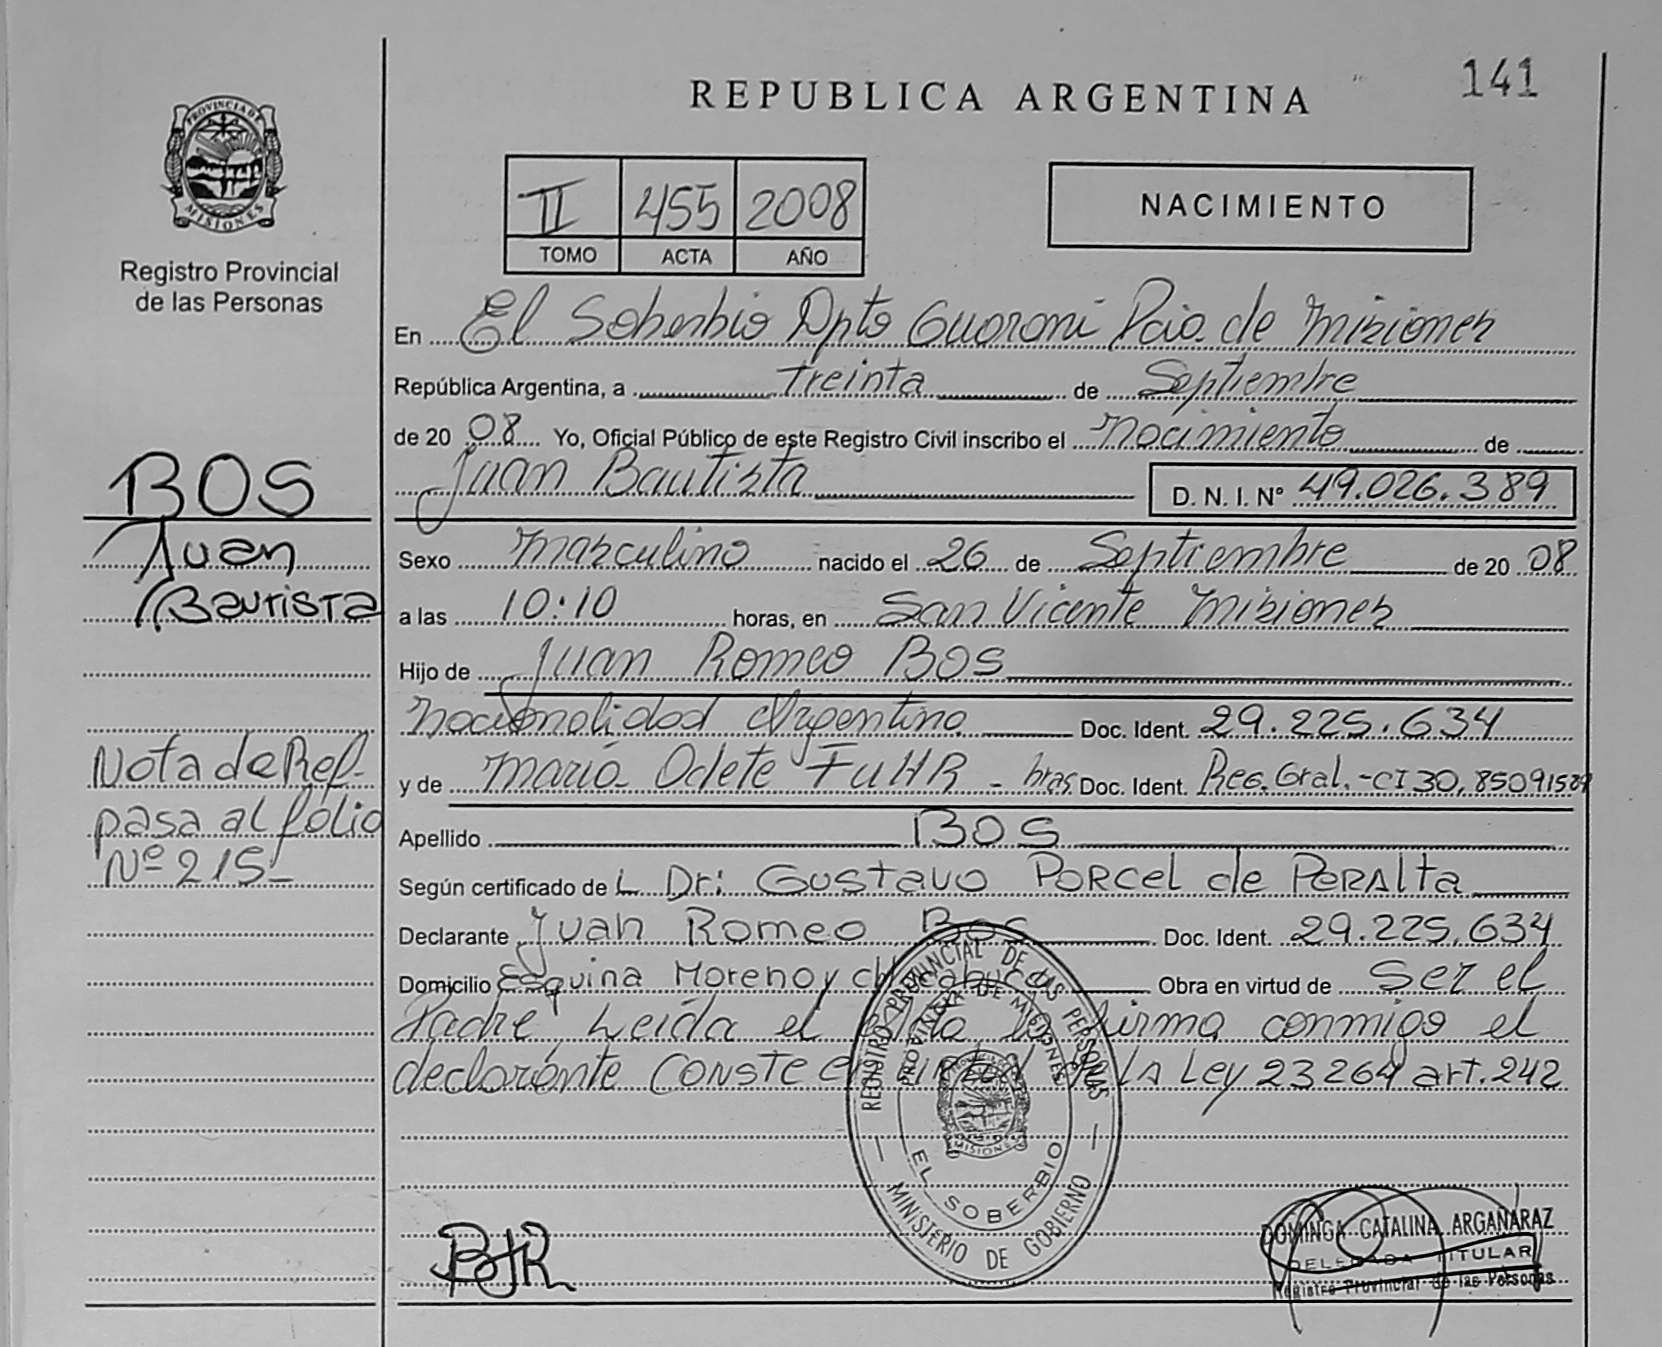 REPUBLICA ARGENTINA
141
PROVINCIA DE
MISIONES
Registro Provincial
de las Personas
II 455 2008
TOMO ACTA AÑO
NACIMIENTO
En El Soberbio Dpto Guarani Pcia. de Misiones
República Argentina, a treinta de Septiembre
de 2008 Yo, Oficial Público de este Registro Civil inscribo el Nacimiento de
Juan Bautista D. N. I. Nº 49.026.389
BOS
Juan
Bautista
Sexo Masculino nacido el 26 de Septiembre de 2008
a las 10:10 horas, en San Vicente Misiones
Hijo de Juan Romeo BOS
Nacionalidad Argentina Doc. Ident. 29.225.634
y de Maria Odete FUHR - bras Doc. Ident. Reg. Gral.-CI 30.85091589
Nota de Ref.
pasa al folio
Nº 215-
Apellido BOS
Según certificado de L Dr: Gustavo Porcel de Peralta
Declarante Juan Romeo Bos Doc. Ident. 29.225.634
Domicilio Esquina Moreno y Obra en virtud de Ser el
Padre Leida el la firma conmigo el
declarante CONSTE la Ley 23264 art. 242
REGISTRO PROVINCIAL DE LAS PERSONAS
PROVINCIA DE MISIONES
EL SOBERBIO
MINISTERIO DE GOBIERNO
BJR
DOMINGA CATALINA ARGAÑARAZ
DELEGADA TITULAR
Registro Provincial de las Personas